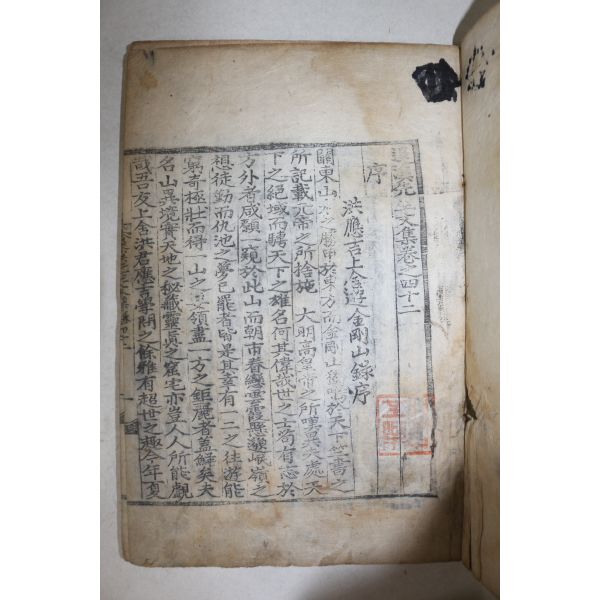 退溪先生文集卷之四十二
序
洪應吉上舍遊金剛山錄序
關東山水之勝甲於東方而金剛山鳴於天下竺書之
所記載元帝之所捨施 大明高皇帝之所嘆異夫處天
下之絕域而騁天下之雄名何其偉哉世之士苟有志於
方外者咸願一窺於此山而朝市眷雲霞懸邈岷嶺之
想徒勤而仇池之夢已罷者皆是其幸有一二之往遊能
窮奇極壯而得一山之要領盡一方之鉅麗者蓋鮮矣夫
名山異境實天地之秘藏靈眞之窟宅亦豈人人所能覩
哉吾友上舍洪君應吉學問之餘雅有超世之趣今年夏